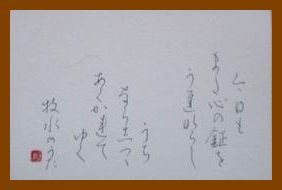 今日も
また心の鉦を
うちならし
うち
ならしつつ
あくがれて
ゆく
牧水のうた